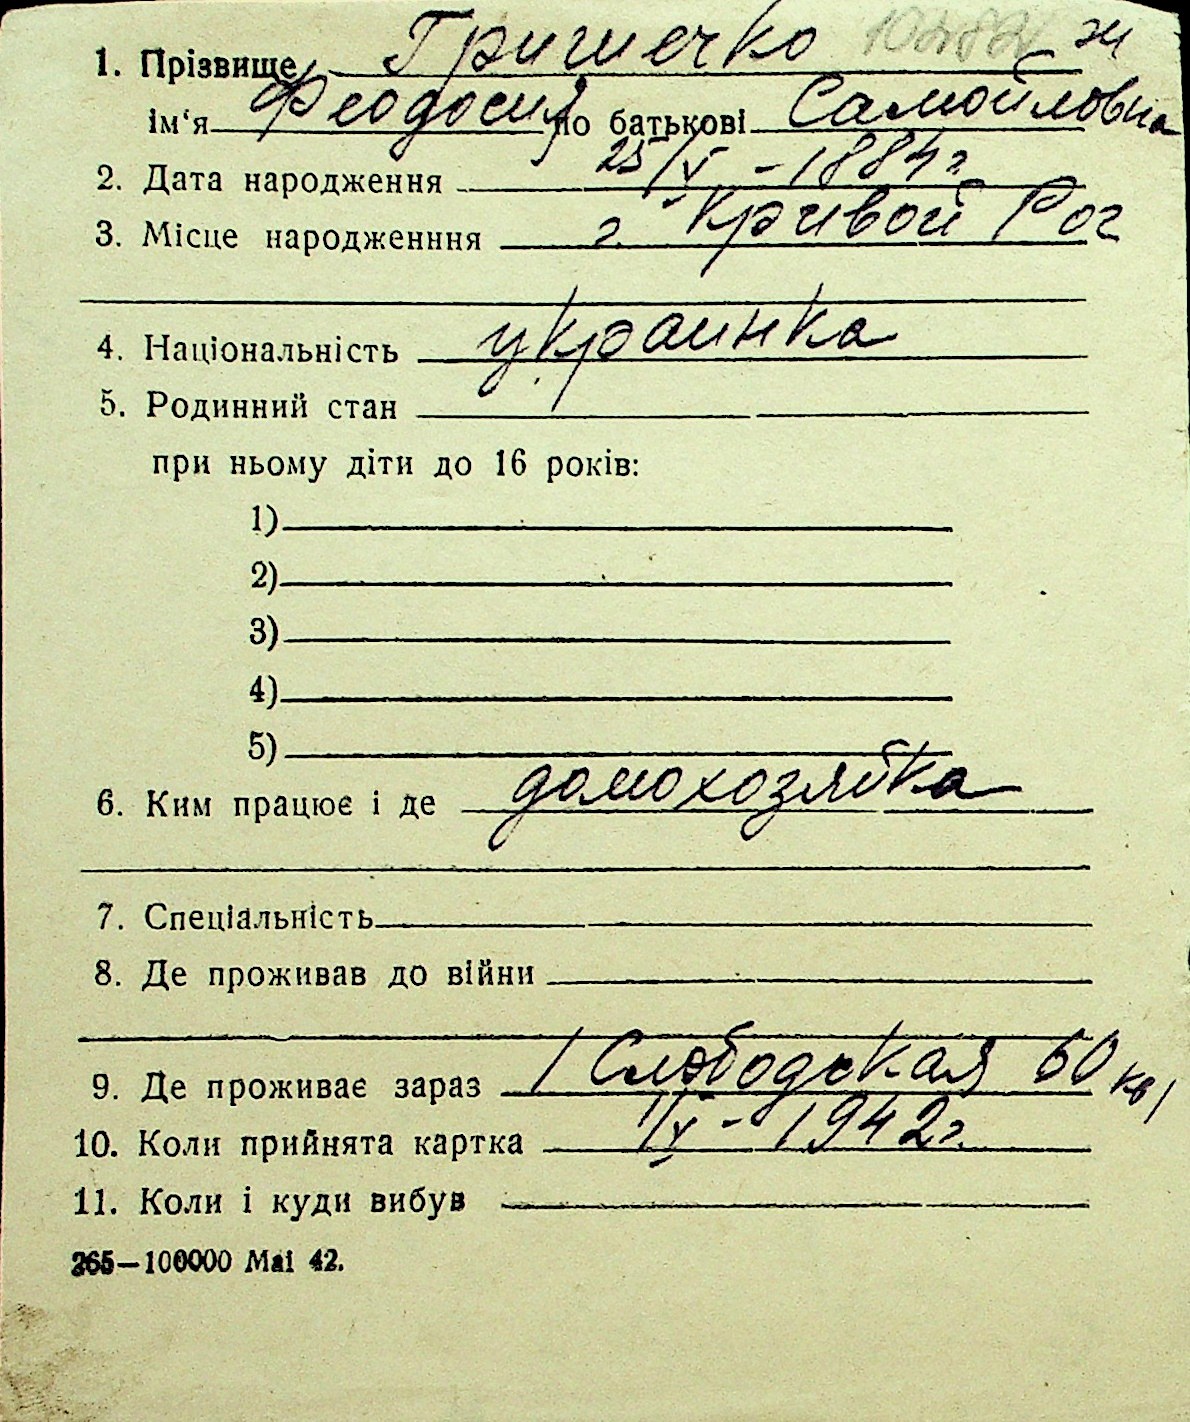 1. Прізвище Гришечко ж
ім‘я Феодосия по батькові Самойловна
2. Дата народження 25/V - 1884 г.
3. Місце народженння г. Кривой Рог
4. Національність украинка
5. Родинний стан
при ньому діти до 16 років:
1)
2)
3)
4)
5)
6. Ким працює і де домохозяйка
7. Спеціальність
8. Де проживав до війни
9. Де проживає зараз Слободская 60 кв 1
10. Коли прийнята картка - 1942 г.
11. Коли і куди вибув
265—100000 Mai 42.